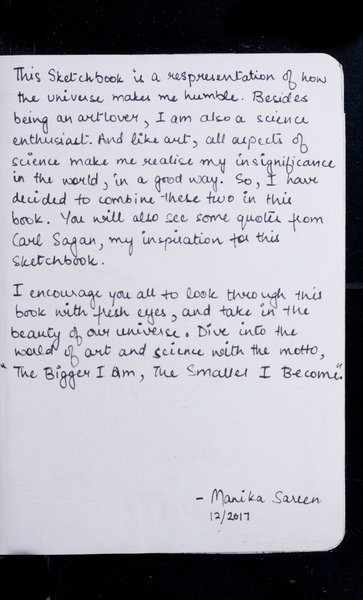 This Sketchbook is a respresentation of how
the universe makes me humble. Besides
being an artlover, I am also a science
enthusiast. And like art, all aspects of
science make me realise my insignificance
in the world, in a good way. So, I have
decided to combine these two in this
book. You will also see some quotes from
Carl Sagan, my inspiration for this
sketchbook.
I encourage you all to look through this
book with fresh eyes, and take in the
beauty of our universe. Dive into the
world of art and science with the motto,
"The Bigger I Am, The Smaller I Become".
- Manika Sareen
12/2017